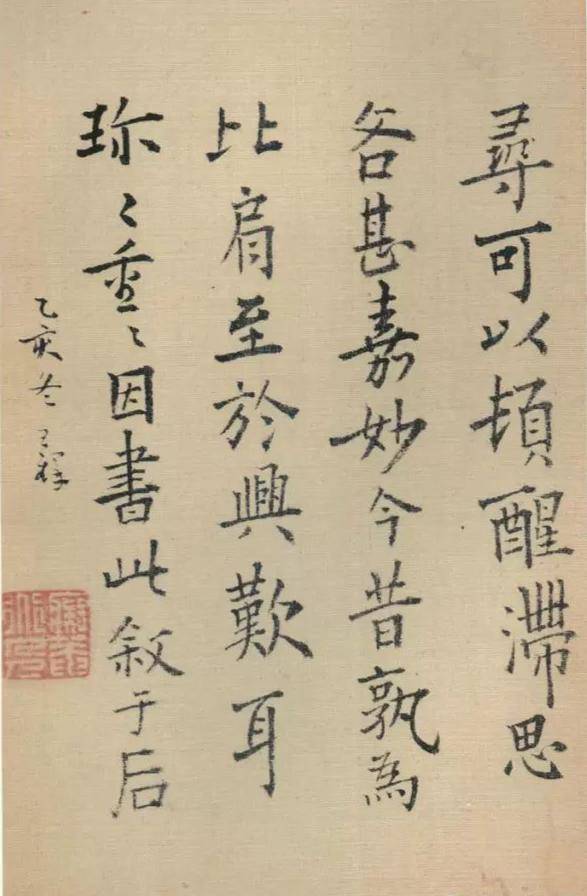 尋可以頓醒滯思
各甚嘉妙今昔孰為
比肩至於興歎耳
珎〻重〻因書此敘于后
乙亥冬